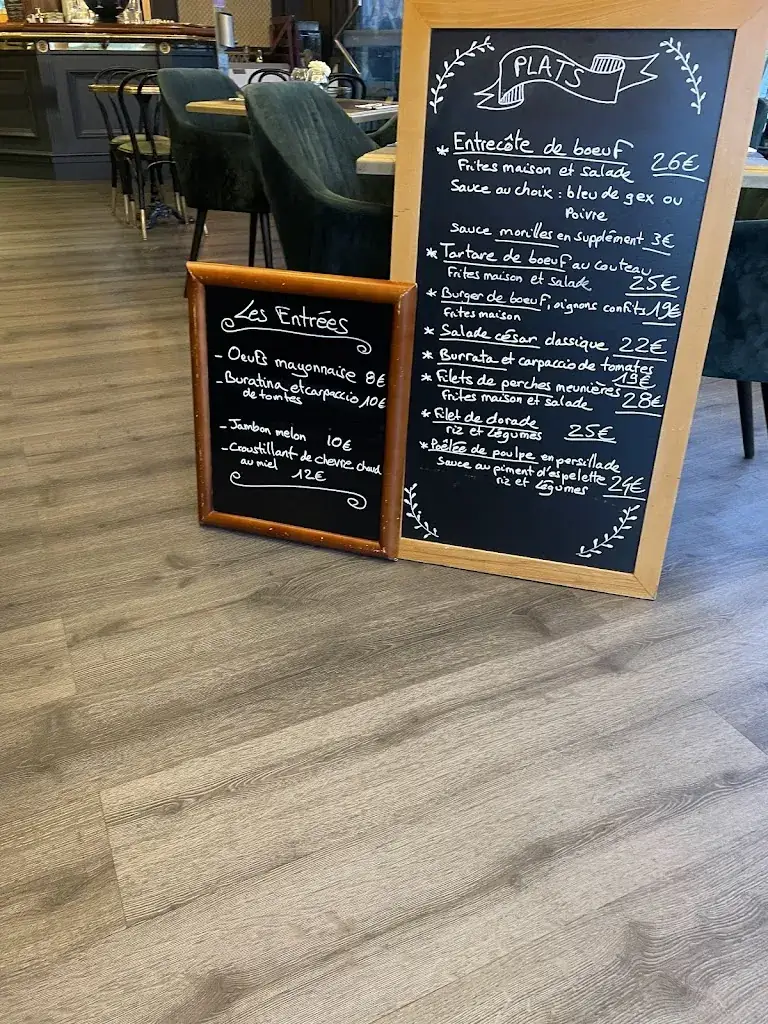 Les Entrées
- Oeufs mayonnaise 8€
- Buratina et carpaccio 10€
de tomtes
- Jambon melon 10€
- Croustillant de chèvre chaud
au miel 12€
PLATS
* Entrecôte de boeuf
Frites maison et salade 26€
Sauce au choix : bleu de gex ou
Poivre
Sauce morilles en supplément 3€
* Tartare de boeuf au couteau
Frites maison et salade 25€
* Burger de boeuf, oignons confits 19€
Frites maison
* Salade césar classique 22€
* Burrata et carpaccio de tomates
19€
* Filets de perches meunières
Frites maison et salade 28€
* Filet de dorade
riz et légumes 25€
* Poêlée de poulpe en persillade
Sauce au piment d'espelette
riz et légumes 24€